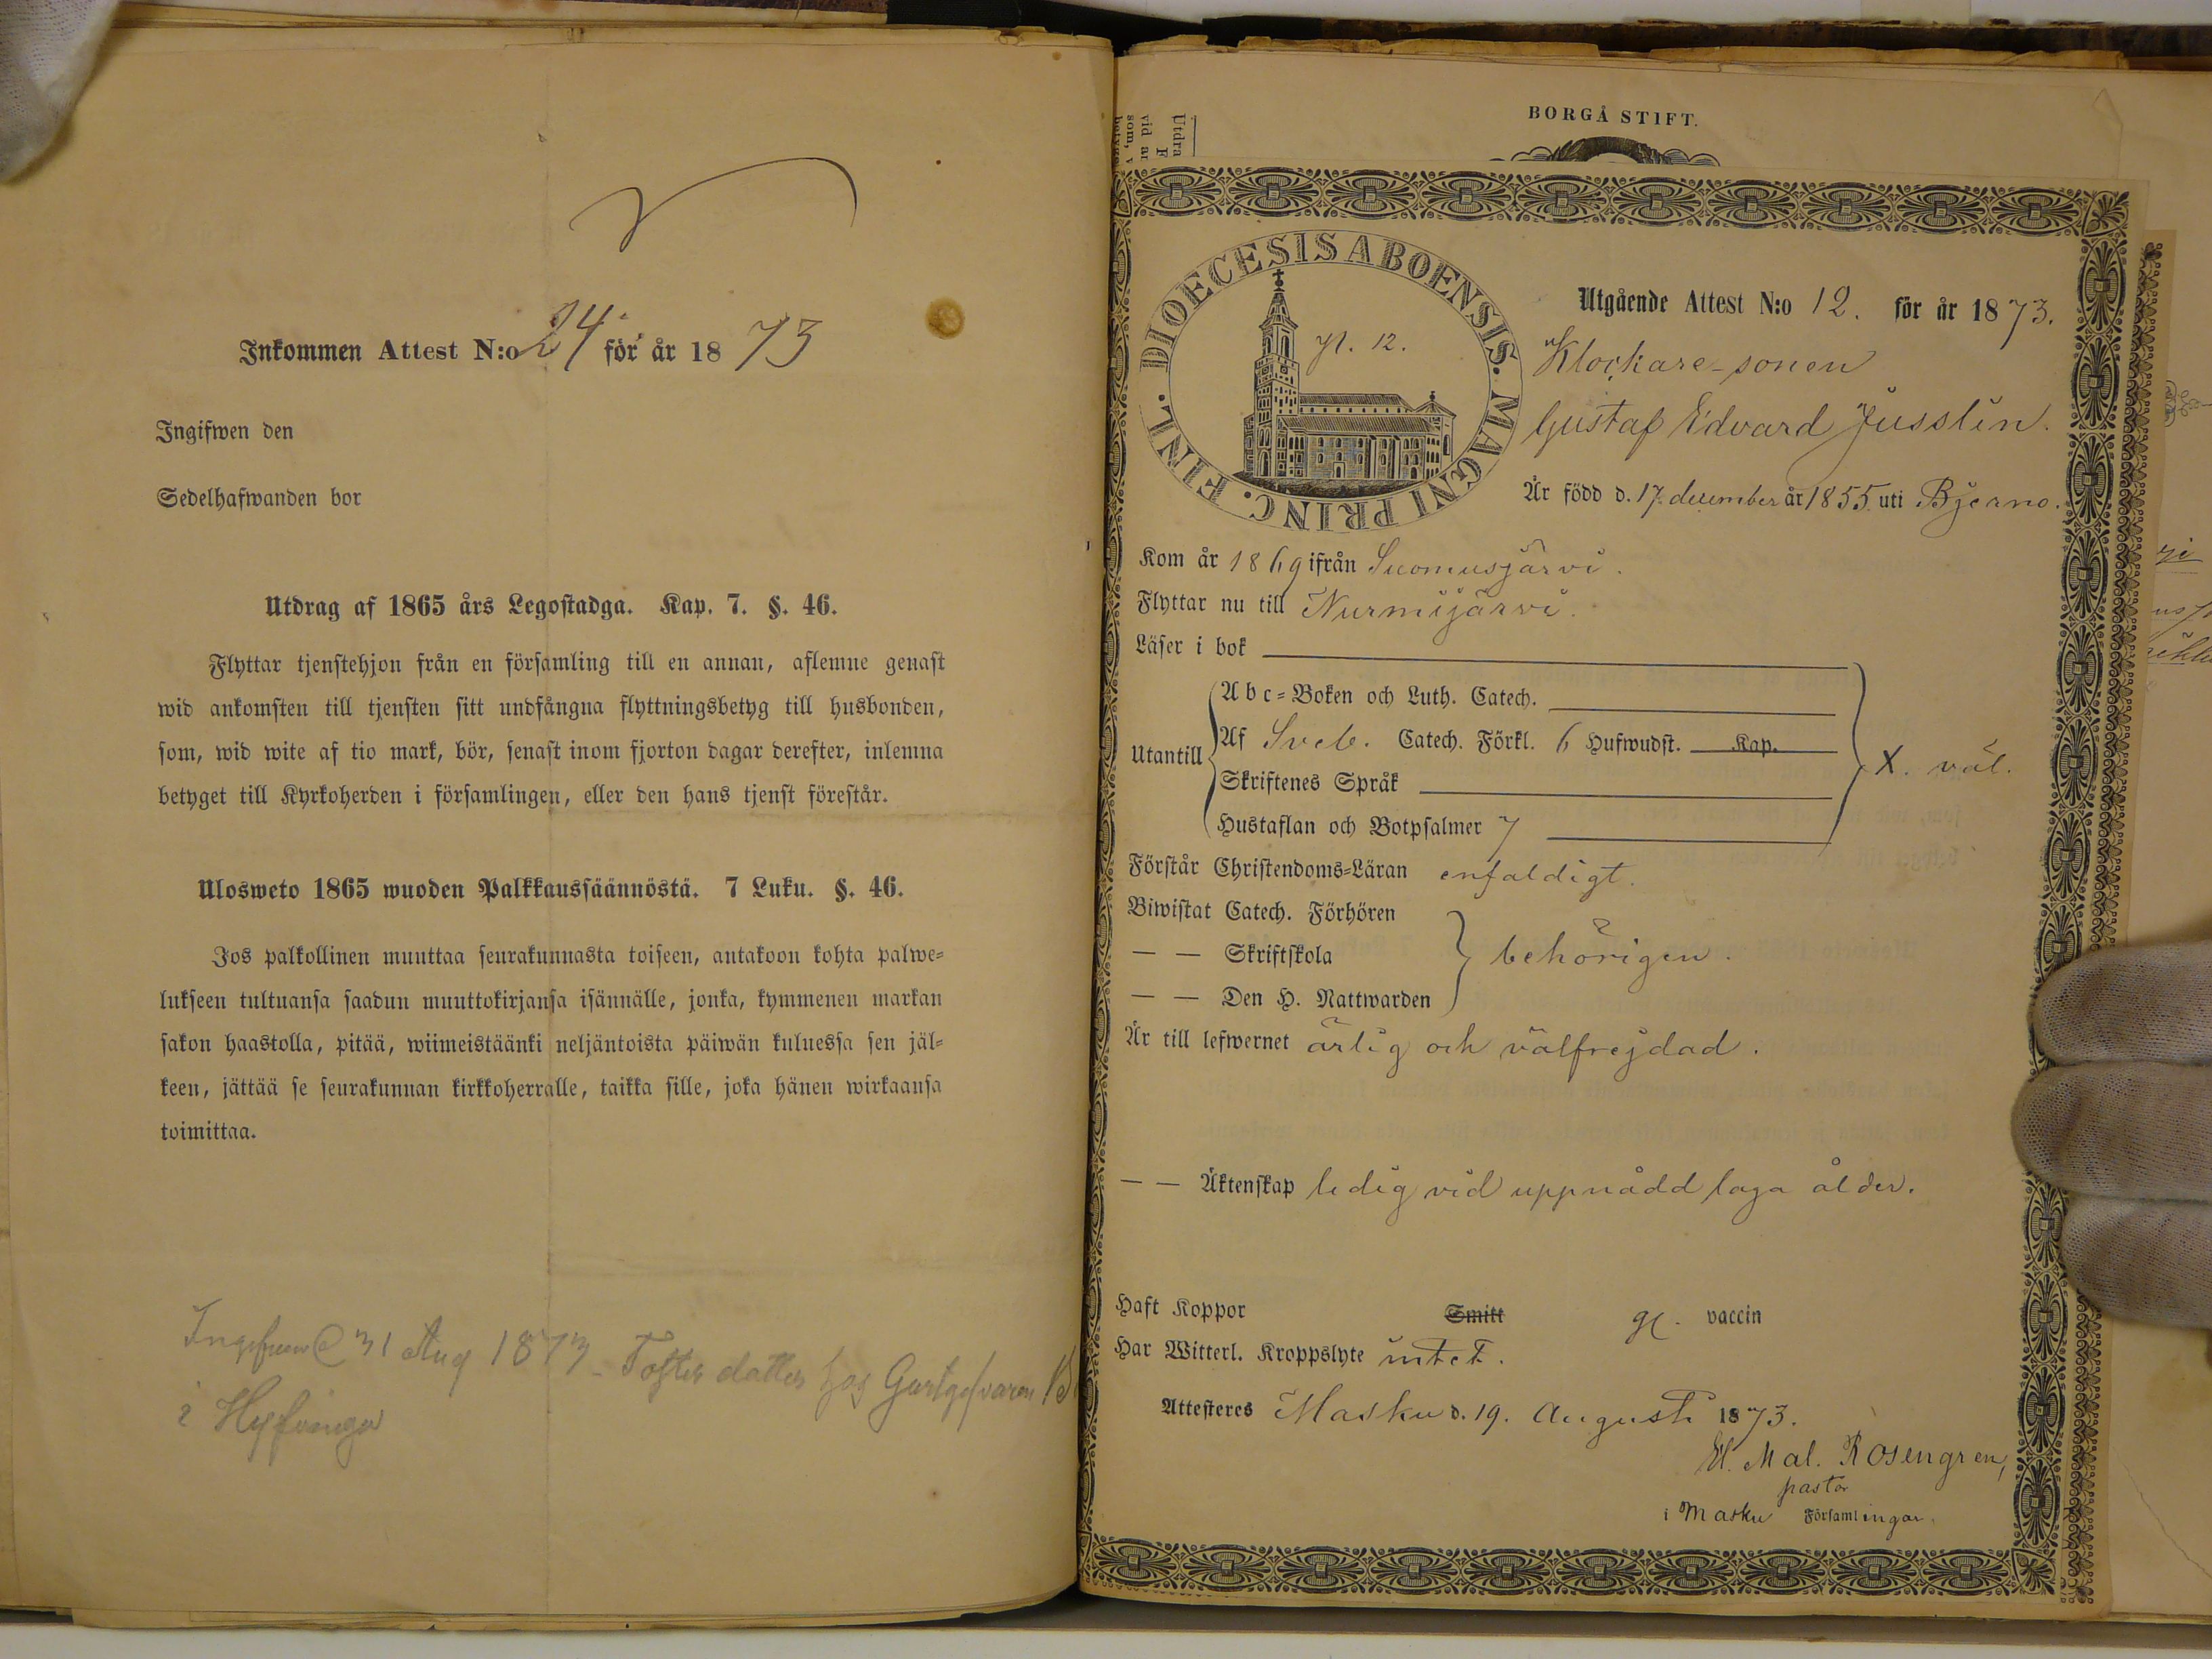 Inkommen Attest N:o 24 för år 1873
Ingifwen den
Sedelhafwanden bor
Utdrag af 1865 års Legostadga. Kap. 7. §. 46.
Flyttar tjenstehjon från en församling till en annan, aflemne genast
wid ankomsten till tjensten sitt undfångna flyttningsbetyg till husbonden,
som, wid wite af tio mark, bör, senast inom fjorton dagar derefter, inlemna
betyget till Kyrkoherden i församlingen, eller den hans tjenst förestår.
Ulosweto 1865 wuoden Palkkaussäännöstä. 7 Luku. §. 46.
Jos palkollinen muuttaa seurakunnasta toiseen, antakoon kohta palwe-
lukseen tultuansa saadun muuttokirjansa isännälle, jonka, kymmenen markan
sakon haastolla, pitää, wiimeistäänki neljäntoista päiwän kuluessa sen jäl-
keen, jättää se seurakunnan kirkkoherralle, taikka sille, joka hänen wirkaansa
toimittaa.
31 Aug 1873 Foster dotter hos
i
BORGÅ STIFT.
Utdra
vid an
som, v
betyge
DIOECESIS ABOENSIS. MAGNI PRINC. FINL.
N. 12.
Utgående Attest N:o 12. för år 1873.
Klockare-sonen
Gustaf Edvard Jusslin.
Är född d. 17. december år 1855. uti Bjerno.
Kom år 1869 ifrån Suomusjärvi.
Flyttar nu till Nurmijärvi.
Läser i bok
Utantill
Abc-Boken och Luth. Catech.
Af Sveb. Catech. Förkl. 6 Hufwudst. Kap.
Skriftenes Språk
Hustaflan och Botpsalmer 7
X. väl.
Förstår Christendoms-Läran enfaldigt.
Biwistat Catech. Förhören
— — Skriftskola
— — Den H. Nattwarden
behörigen.
Är till lefwernet ärlig och välfrejdad.
— — Äktenskap ledig vid uppnådd laga ålder.
Haft Koppor Smitt gl. vaccin
Har Witterl. Kroppslyte intet.
Attesteres Masku d. 19. Augusti 1873.
Mal. Rosengren,
pastor
i Masku Församlingar.